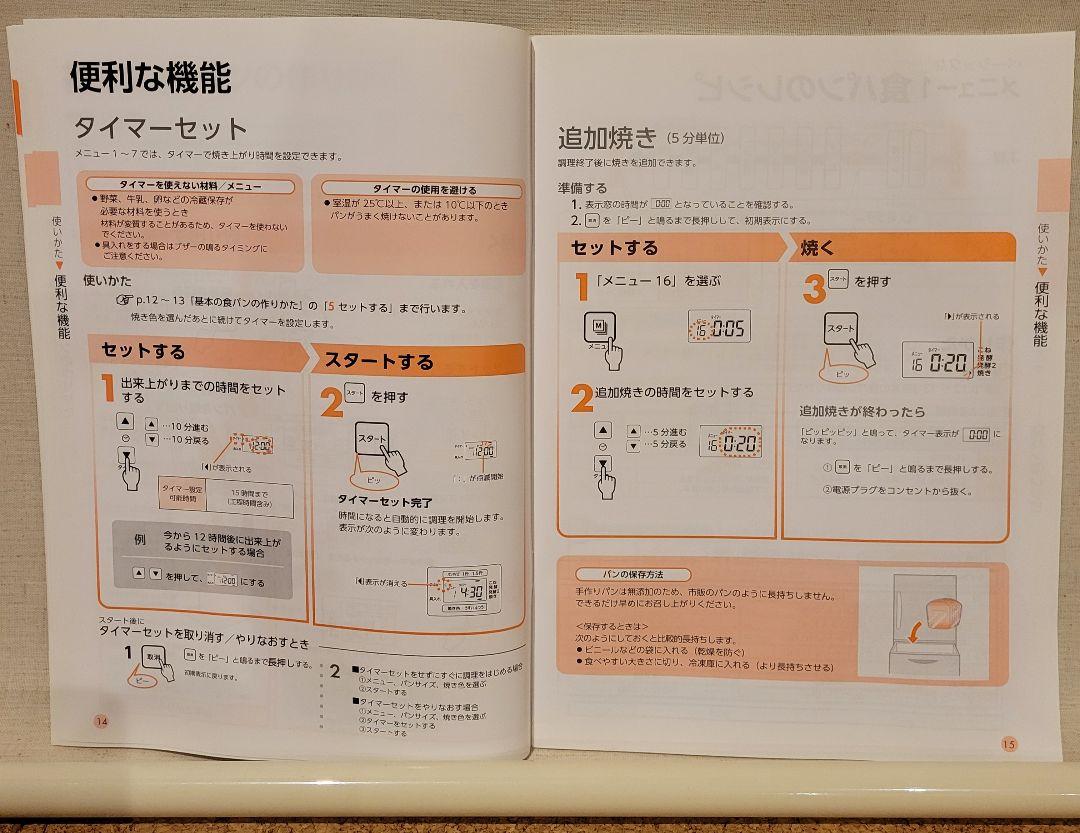 便利な機能
タイマーセット
メニュー1～7では、タイマーで焼き上がり時間を設定できます。
タイマーを使えない材料／メニュー
●野菜、牛乳、卵などの冷蔵保存が
必要な材料を使うとき
材料が変質することがあるため、タイマーを使わない
でください。
●具入れをする場合はブザーの鳴るタイミングに
ご注意ください。
タイマーの使用を避ける
●室温が25℃以上、または10℃以下のとき
パンがうまく焼けないことがあります。
使いかた▼便利な機能
使いかた
p.12～13「基本の食パンの作りかた」の「5 セットする」まで行います。
焼き色を選んだあとに続けてタイマーを設定します。
セットする
1 出来上がりまでの時間をセット
する
▲ …10分進む
▼ …10分戻る
12:00
「◀」が表示される
タイマー設定
可能時間
15時間まで
（工程時間含み）
例
今から12時間後に出来上が
るようにセットする場合
▲ ▼ を押して、 12:00 にする
スタートする
2 スタート を押す
スタート
ピッ
12:00
「：」が点滅開始
タイマーセット完了
時間になると自動的に調理を開始します。
表示が次のように変わります。
◀表示が消える
4:30
スタート後に
タイマーセットを取り消す／やりなおすとき
1 取消
ピー
取消 を「ピー」と鳴るまで長押しする。
初期表示に戻ります。
2
■タイマーセットをせずにすぐに調理をはじめる場合
①メニュー、パンサイズ、焼き色を選ぶ
②スタートする
■タイマーセットをやりなおす場合
①メニュー、パンサイズ、焼き色を選ぶ
②タイマーをセットする
③スタートする
14
追加焼き（5分単位）
調理終了後に焼きを追加できます。
準備する
1. 表示窓の時間が 0:00 となっていることを確認する。
2. 取消 を「ピー」と鳴るまで長押しして、初期表示にする。
セットする
1 「メニュー16」を選ぶ
M
メニュ
16 0:05
2 追加焼きの時間をセットする
▲ …5分進む
▼ …5分戻る
0:20
焼く
3 スタート を押す
スタート
ピッ
「▶」が表示される
メニュー タイマー
16 0:20
こね
発酵
発酵2
焼き
追加焼きが終わったら
「ピッピッピッ」と鳴って、タイマー表示が 0:00 に
なります。
① 取消 を「ピー」と鳴るまで長押しする。
②電源プラグをコンセントから抜く。
パンの保存方法
手作りパンは無添加のため、市販のパンのように長持ちしません。
できるだけ早めにお召し上がりください。
＜保存するときは＞
次のようにしておくと比較的長持ちします。
●ビニールなどの袋に入れる（乾燥を防ぐ）
●食べやすい大きさに切り、冷凍庫に入れる（より長持ちさせる）
使いかた▼便利な機能
15